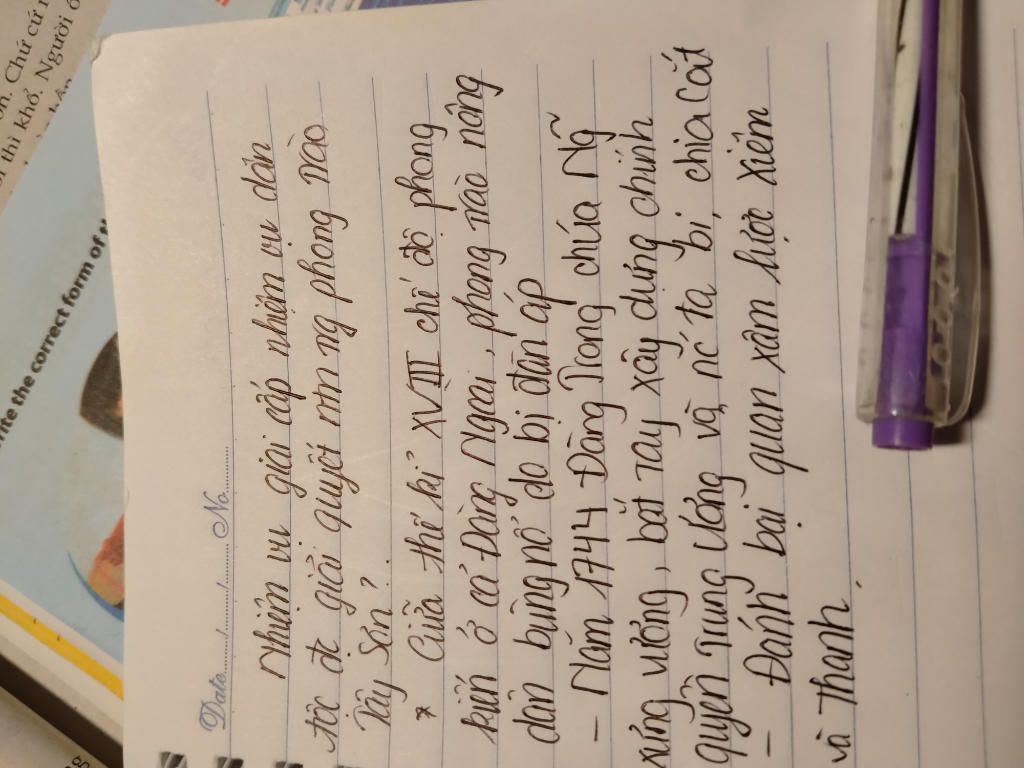 Date....../....../...... No...........
Nhiệm vu giai cấp nhiệm vu dân
tộc đc giải quyết ntn ng phong rào
Tây Sơn?
* Giữa thế kỉ XVIII chế độ phong
kiến ở cả Đàng Ngoài, phong rào nông
dân bùng nổ do bị đàn áp
- Năm 1744 Đàng Trong chúa Ng̃
xưng vương, bắt tay xây dựng chính
quyền Trung Ương và nc ta bị chia cắt
- Đánh bại quan xâm lược xiêm
và Thanh.
rite the correct form of t
ơn. Chữ cứ
ời thì khổ. Người